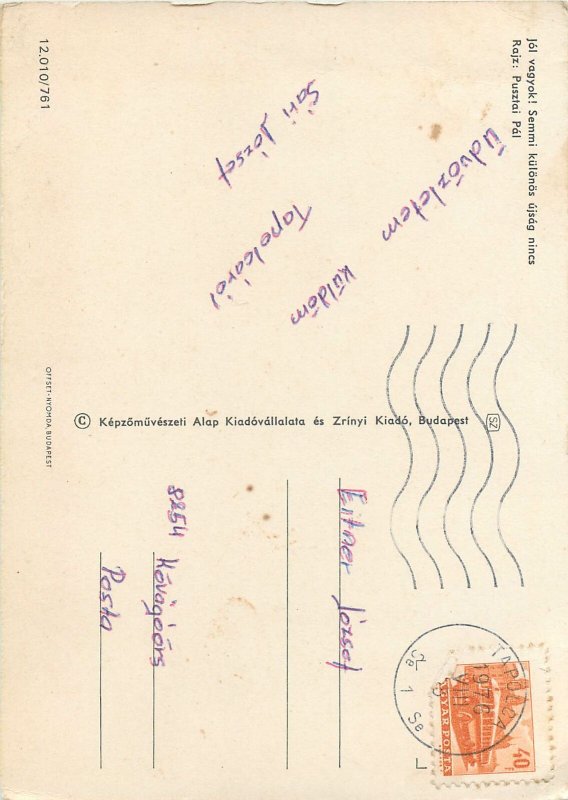 Jól vagyok! Semmi különös újság nincs
Rajz: Pusztai Pál
Üdvözletem küldöm
Tapolcáról
Sári József
12.010/761
© Képzőművészeti Alap Kiadóvállalata és Zrínyi Kiadó, Budapest
SZ
OFFSET-NYOMDA, BUDAPEST
TAPOLCA
1976
VIII
Se 1 Se
MAGYAR POSTA
40f
Eitner József
8254 Kővágóörs
Posta